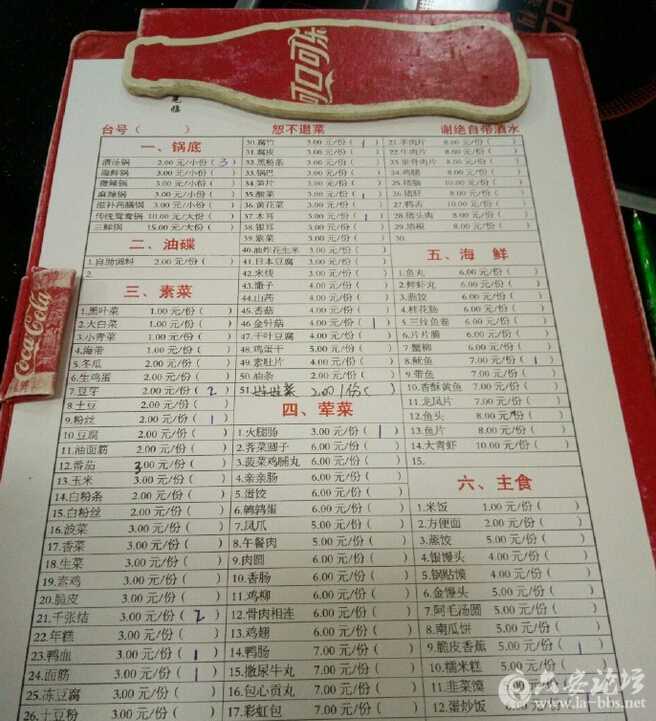 可口可乐
台号（　　）
恕不退菜
谢绝自带酒水
一、锅底
清汤锅 2.00 元/小份( 3 )
海鲜锅 3.00 元/小份( )
微辣锅 3.00 元/小份( )
麻辣锅 3.00 元/小份( )
滋补药膳锅 3.00 元/小份( )
传统鸳鸯锅 10.00 元/大份( )
三鲜锅 15.00 元/大份( )
二、油碟
1.自助调料 2.00 元/份( )
2.
三、素菜
1.黑叶菜 1.00 元/份( )
2.大白菜 1.00 元/份( )
3.小青菜 1.00 元/份( )
4.海带 1.00 元/份( )
5.冬瓜 2.00 元/份( )
6.生鸡蛋 2.00 元/份( )
7.豆芽 2.00 元/份( 2 )
8.土豆 2.00 元/份( )
9.粉丝 2.00 元/份( 1 )
10.豆腐 2.00 元/份( )
11.油面筋 2.00 元/份( )
12.番茄 3.00 元/份( )
13.玉米 3.00 元/份( )
14.白粉条 2.00 元/份( )
15.白粉丝 2.00 元/份( )
16.菠菜 3.00 元/份( )
17.香菜 3.00 元/份( )
18.生菜 3.00 元/份( )
19.素鸡 3.00 元/份( )
20.脆皮 3.00 元/份( )
21.千张结 3.00 元/份( 2 )
22.年糕 3.00 元/份( )
23.鸭血 3.00 元/份( 1 )
24.面筋 3.00 元/份( 1 )
25.冻豆腐 3.00 元/份( )
26.土豆粉 3.00 元/份( )
30.腐竹 3.00 元/份( 1 )
31.腐皮 3.00 元/份( )
32.黑粉条 3.00 元/份( )
33.锅巴 3.00 元/份( )
34.笋片 3.00 元/份( )
35.酸菜 3.00 元/份( 1 )
36.黄花菜 3.00 元/份( )
37.木耳 3.00 元/份( 1 )
38.银耳 3.00 元/份( )
39.紫菜 3.00 元/份( )
40.油炸花生米 3.00 元/份( )
41.日本豆腐 3.00 元/份( )
42.米线 3.00 元/份( )
43.馓子 3.00 元/份( )
44.山药 4.00 元/份( )
45.香菇 4.00 元/份( )
46.金针菇 4.00 元/份( 1 )
47.千叶豆腐 4.00 元/份( )
48.鸡蛋干 5.00 元/份( )
49.素肚片 4.00 元/份( )
50.油条 2.00 元/份( )
51. 2.00 /份( )
四、荤菜
1.火腿肠 3.00 元/份( 1 )
2.荠菜圆子 6.00 元/份( )
3.菠菜鸡脯丸 6.00 元/份( )
4.亲亲肠 6.00 元/份( )
5.蛋饺 6.00 元/份( )
6.鹌鹑蛋 6.00 元/份( )
7.凤爪 5.00 元/份( )
8.午餐肉 5.00 元/份( )
9.肉圆 6.00 元/份( )
10.香肠 6.00 元/份( )
11.鸡柳 6.00 元/份( )
12.骨肉相连 6.00 元/份( )
13.鸡翅 6.00 元/份( )
14.鸭肠 7.00 元/份( )
15.撒尿牛丸 7.00 元/份( )
16.包心贡丸 7.00 元/份( )
17.彩虹包 7.00 元/份( )
21.羊肉片 8.00 元/份( )
22.牛肉片 8.00 元/份( )
23.里脊肉片 8.00 元/份( )
24.鸡腿 8.00 元/份( )
25.猪脑 10.00 元/份( )
26.猪肝 8.00 元/份( )
27.鸭舌 10.00 元/份( )
28.猪头肉 8.00 元/份( )
29.猪根 8.00 元/份( )
30.
五、海鲜
1.鱼丸 6.00 元/份( )
2.鲜虾丸 6.00 元/份( )
3.燕饺 6.00 元/份( )
4.桂花肠 6.00 元/份( )
5.三丝鱼卷 6.00 元/份( )
6.片片脆 6.00 元/份( )
7.蟹柳 6.00 元/份( )
8.鱿鱼 7.00 元/份( 1 )
9.带鱼 7.00 元/份( )
10.香酥黄鱼 7.00 元/份( )
11.龙凤片 7.00 元/份( )
12.鱼头 8.00 元/份( )
13.鱼片 8.00 元/份( )
14.大青虾 10.00 元/份( )
15.
六、主食
1.米饭 1.00 元/份( )
2.方便面 2.00 元/份( )
3.蒸饺 5.00 元/份( )
4.银馒头 4.00 元/份( )
5.锅贴馍 4.00 元/份( )
6.金馒头 5.00 元/份( )
7.阿毛汤圆 5.00 元/份( )
8.南瓜饼 5.00 元/份( )
9.脆皮香蕉 5.00 元/份( 1 )
10.糯米糕 5.00 元/份( )
11.韭菜馍 7.00 元/份( )
12.蛋炒饭 5.00 元/份( )
Coca-Cola
六安论坛
www.la-bbs.net